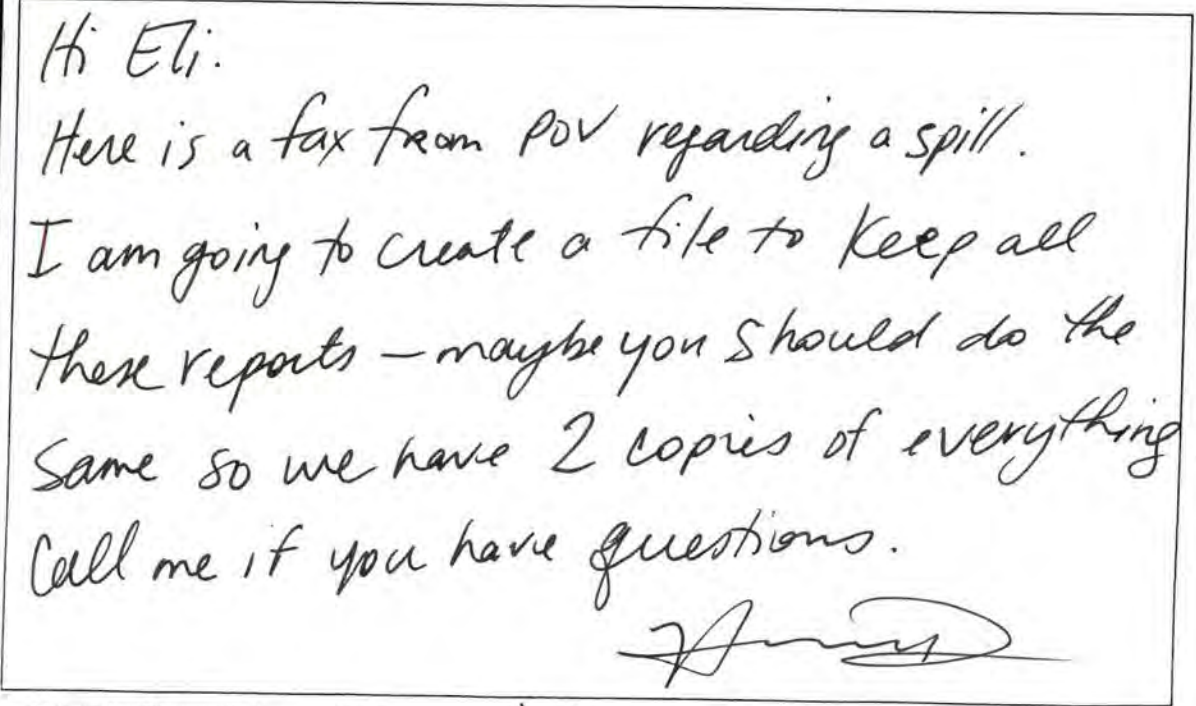 Hi Eli.
Here is a fax from POV regarding a spill.
I am going to create a file to Keep all
these reports – maybe you should do the
Same so we have 2 copies of everything
Call me if you have questions.